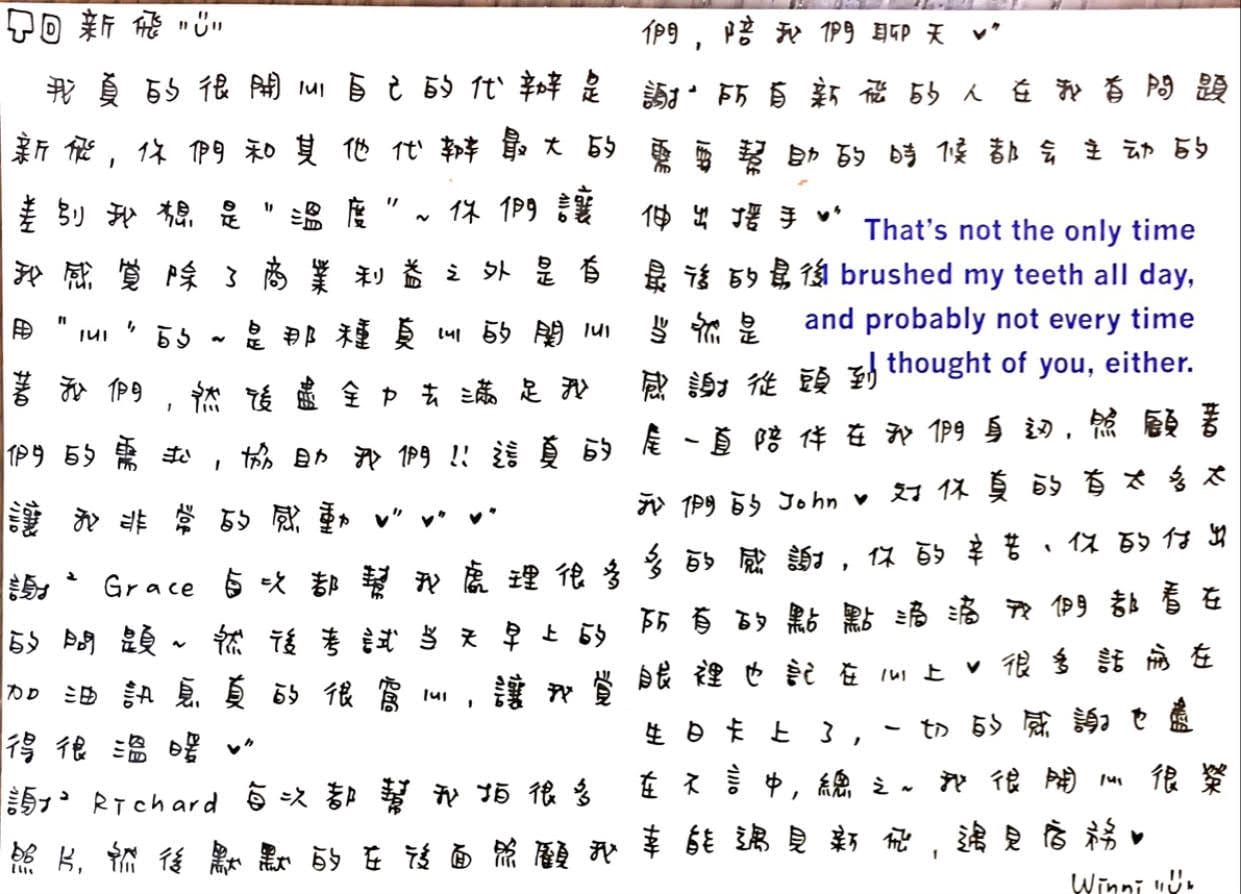 신新飛"ü"
我真的很開心自己的代辦是
新飛,你們和其他代辦最大的
差別我想是"溫度"~你們讓
我感覺除了商業利益之外是有
用"心"的~是那種真心的關心
著我們,然後盡全力去滿足我
們的需求,協助我們!!這真的
讓我非常的感動♥"♥"♥"
謝² Grace 每次都幫我處理很多
的問題~然後考試当天早上的
加油訊息真的很窩心,讓我覺
得很溫暖♥"
謝² Richard 每次都幫我拍很多
照片,然後默默的在後面照顧我
們,陪我們聊天♥"
謝²所有新飛的人在我有問題
需要幫助的時候都会主动的
伸出援手♥"
最後的最後
当然是
感謝從頭到
尾一直陪伴在我們身边,照顧著
我們的John♥对你真的有太多太
多的感謝,你的辛苦、你的付出
所有的點點滴滴我們都看在
眼裡也記在心上♥很多話寫在
生日卡上了,一切的感謝也盡
在不言中,總之~我很開心很榮
幸能遇見新飛,遇見宿務♥
Winni "ü"
That's not the only time
I brushed my teeth all day,
and probably not every time
I thought of you, either.